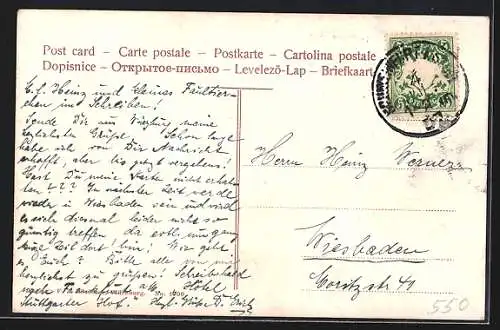 Post card – Carte postale – Postkarte – Cartolina postale
Dopisnice – Открытое-письмо – Levelező-Lap – Briefkaart
Heinz und kleines Faultier-
chen im Schreiben!
Sende Dir aus Würzburg meine
herzlichsten Grüße. Schon lange
habe ich von Dir Nachricht
erhofft, aber bis jetzt vergebens!
Hast Du meine Karte nicht erhal-
ten ??? In nächster Zeit werde
wieder in Wiesbaden sein und wird
es sich diesmal leider nicht so
günstig treffen da evtl. nur ganz
kurze Zeit dort bin! Wie geht
es Euch? Bitte Alle von mir
herzlichst zu grüßen!
nach Frankfurt a/M. Hotel
Stuttgarter Hof. Erich
Herrn Heinz Werner
Wiesbaden
Moritzstr 40
550